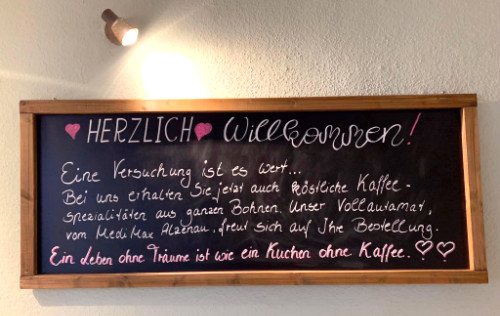 HERZLICH Willkommen!
Eine Versuchung ist es wert...
Bei uns erhalten Sie jetzt auch köstliche Kaffee-
spezialitäten aus ganzen Bohnen. Unser Vollautomat,
vom MediMax Alzenau, freut sich auf Ihre Bestellung.
Ein Leben ohne Träume ist wie ein Kuchen ohne Kaffee.